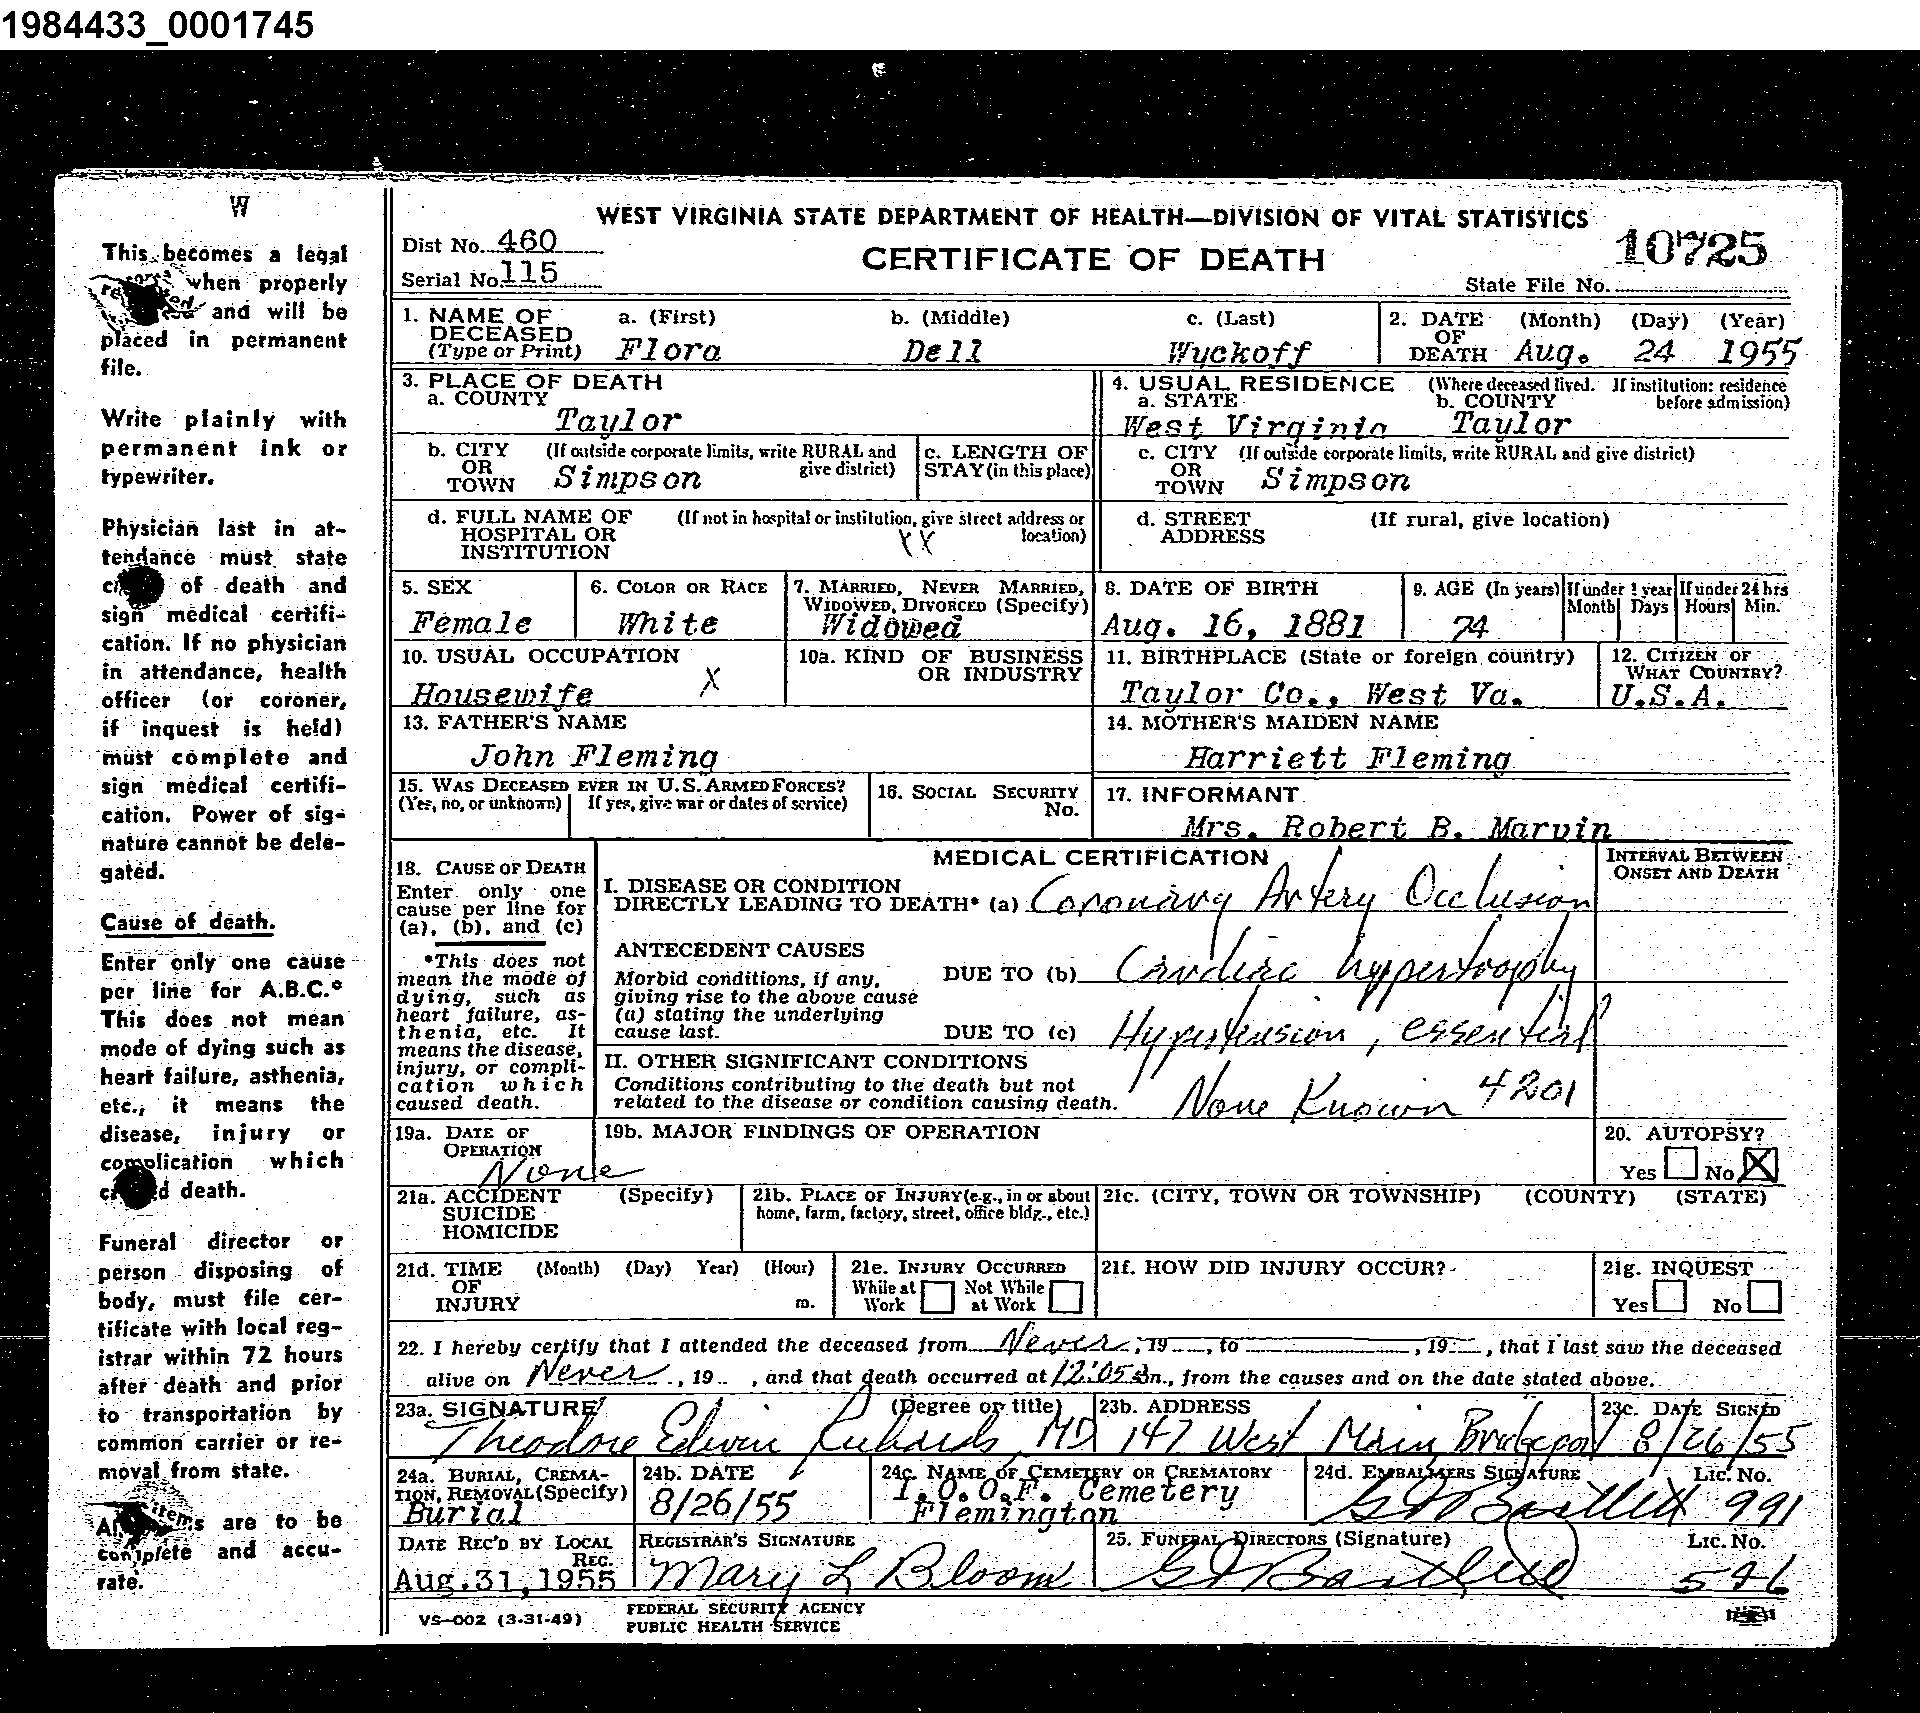 1984433_0001745
W
This becomes a legal
when properly
and will be
placed in permanent
file.
Write plainly with
permanent ink or
typewriter.
Physician last in at-
tendance must state
of death and
sign medical certifi-
cation. If no physician
in attendance, health
officer (or coroner,
if inquest is held)
must complete and
sign medical certifi-
cation. Power of sig-
nature cannot be dele-
gated.
Cause of death.
Enter only one cause
per line for A.B.C.*
This does not mean
mode of dying such as
heart failure, asthenia,
etc., it means the
disease, injury or
complication which
death.
Funeral director or
person disposing of
body, must file cer-
tificate with local reg-
istrar within 72 hours
after death and prior
to transportation by
common carrier or re-
moval from state.
items are to be
complete and accu-
rate.
WEST VIRGINIA STATE DEPARTMENT OF HEALTH—DIVISION OF VITAL STATISTICS
Dist No. 460
Serial No. 115
CERTIFICATE OF DEATH
10725
State File No.
1. NAME OF DECEASED (Type or Print) a. (First) b. (Middle) c. (Last)
Flora Dell Wyckoff
2. DATE OF DEATH (Month) (Day) (Year)
Aug. 24 1955
3. PLACE OF DEATH
a. COUNTY
Taylor
4. USUAL RESIDENCE (Where deceased lived. If institution: residence before admission)
a. STATE b. COUNTY
West Virginia Taylor
b. CITY OR TOWN (If outside corporate limits, write RURAL and give district)
Simpson
c. LENGTH OF STAY (in this place)
c. CITY OR TOWN (If outside corporate limits, write RURAL and give district)
Simpson
d. FULL NAME OF HOSPITAL OR INSTITUTION (If not in hospital or institution, give street address or location)
XX
d. STREET ADDRESS (If rural, give location)
5. SEX
Female
6. COLOR OR RACE
White
7. MARRIED, NEVER MARRIED, WIDOWED, DIVORCED (Specify)
Widowed
8. DATE OF BIRTH
Aug. 16, 1881
9. AGE (In years) If under 1 year Month Days If under 24 hrs Hours Min.
74
10. USUAL OCCUPATION
Housewife X
10a. KIND OF BUSINESS OR INDUSTRY
11. BIRTHPLACE (State or foreign country)
Taylor Co., West Va.
12. CITIZEN OF WHAT COUNTRY?
U.S.A.
13. FATHER'S NAME
John Fleming
14. MOTHER'S MAIDEN NAME
Harriett Fleming
15. WAS DECEASED EVER IN U.S. ARMED FORCES?
(Yes, no, or unknown) If yes, give war or dates of service)
16. SOCIAL SECURITY No.
17. INFORMANT
Mrs. Robert B. Marvin
18. CAUSE OF DEATH
Enter only one
cause per line for
(a), (b), and (c)
*This does not
mean the mode of
dying, such as
heart failure, as-
thenia, etc. It
means the disease,
injury, or compli-
cation which
caused death.
MEDICAL CERTIFICATION
INTERVAL BETWEEN ONSET AND DEATH
I. DISEASE OR CONDITION
DIRECTLY LEADING TO DEATH* (a) Coronary Artery Occlusion
ANTECEDENT CAUSES
Morbid conditions, if any,
giving rise to the above cause
(a) stating the underlying
cause last.
DUE TO (b) Cardiac hypertrophy
DUE TO (c) Hypertension, essential?
II. OTHER SIGNIFICANT CONDITIONS
Conditions contributing to the death but not
related to the disease or condition causing death.
None Known 4201
19a. DATE OF OPERATION
None
19b. MAJOR FINDINGS OF OPERATION
20. AUTOPSY?
Yes No X
21a. ACCIDENT SUICIDE HOMICIDE (Specify)
21b. PLACE OF INJURY (e.g., in or about home, farm, factory, street, office bldg., etc.)
21c. (CITY, TOWN OR TOWNSHIP) (COUNTY) (STATE)
21d. TIME OF INJURY (Month) (Day) Year) (Hour) m.
21e. INJURY OCCURRED
While at Work Not While at Work
21f. HOW DID INJURY OCCUR?
21g. INQUEST
Yes No
22. I hereby certify that I attended the deceased from Never, 19__, to ________, 19__, that I last saw the deceased
alive on Never, 19__, and that death occurred at 12:05 a m., from the causes and on the date stated above.
23a. SIGNATURE (Degree or title)
Theodore Edwin Richards, MD
23b. ADDRESS
147 West Main Bridgeport
23c. DATE SIGNED
8/26/55
24a. BURIAL, CREMA-
TION, REMOVAL (Specify)
Burial
24b. DATE
8/26/55
24c. NAME OF CEMETERY OR CREMATORY
I.O.O.F. Cemetery
Flemington
24d. EMBALMERS SIGNATURE Lic. No.
Bartlett 991
DATE REC'D BY LOCAL REG.
Aug. 31, 1955
REGISTRAR'S SIGNATURE
Mary L Bloom
25. FUNERAL DIRECTORS (Signature) Lic. No.
Bartlett 546
VS-002 (3-31-49)
FEDERAL SECURITY AGENCY
PUBLIC HEALTH SERVICE